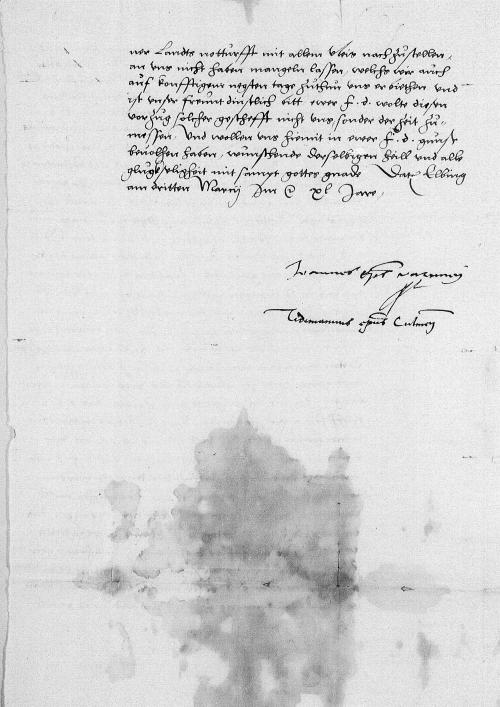 ner Landts notturfft mit allem vleis nach zustellen,
an uns nicht haben mangeln lassen, welchs wir auch
auf konfftigenn negsten tage zuthun uns erbiethen und
ist unser freuntdinstlich bitt ewer f. d. wolte diesen
vorzug solcher gescheffte nicht uns, sonder der zeit zu=
messen. Und wollen uns hiemit in ewer f. d. gunst
bevolhen haben, wunschende derselbigen heill und alle
glugkseligkeit mit sampt gottes gnade Dat Elbing
am dritten Marcij Im xl Jare,
Ioannes eps varmien
Tidemannus epus Culmen